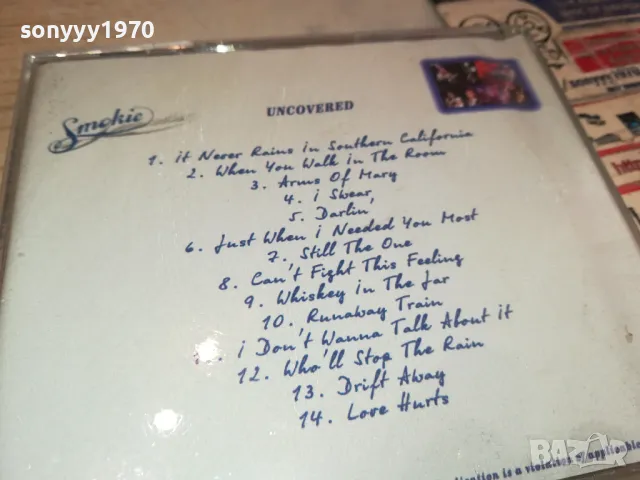 sonyyy1970
Smokie
UNCOVERED
1. it Never Rains in Southern California
2. When You Walk in The Room
3. Arms Of Mary
4. i Swear
5. Darlin'
6. Just When i Needed You Most
7. Still The One
8. Can't Fight This Feeling
9. Whiskey in The Jar
10. Runaway Train
i Don't Wanna Talk About it
12. Who'll Stop The Rain
13. Drift Away
14. Love Hurts
is a violation of applicable
BAZAR